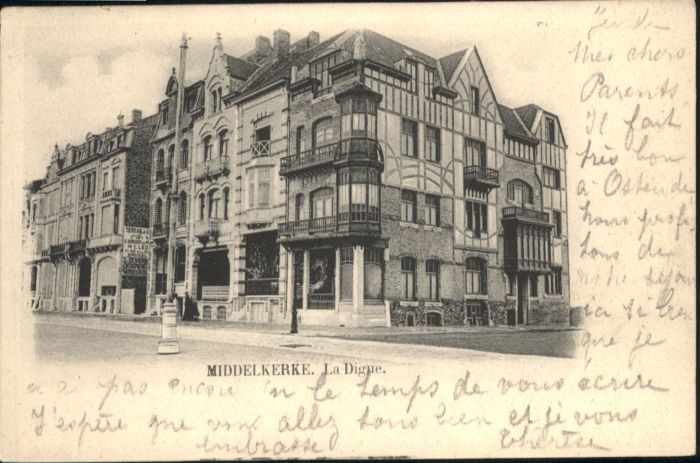 Jeudi
Mes chers
Parents
Il fait
très bon
à Ostende
nous profi
tons de
notre séjour
ici si bien
que je
MIDDELKERKE. La Digue.
n'ai pas encore eu le temps de vous écrire
J'espère que vous allez tous bien et je vous
embrasse Thérèse
TERRAINS